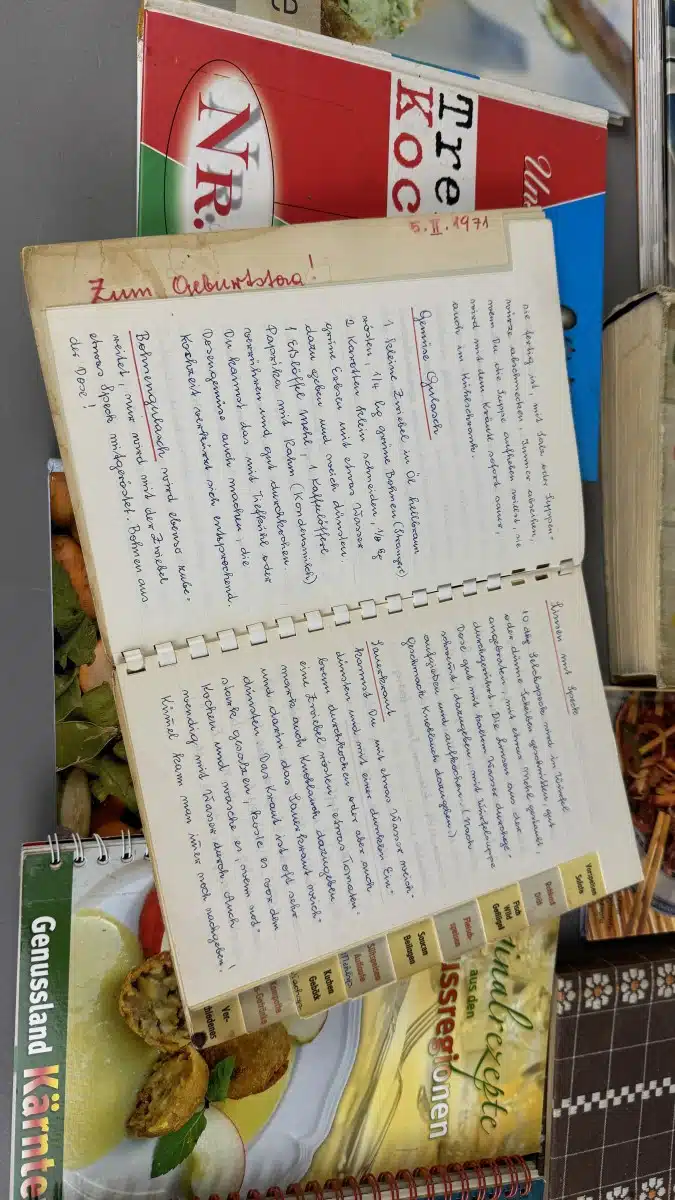 CD
NR.
Tre
Koc
Un
5.II.1971
Zum Geburtstag!
sie fertig ist, mit Salz oder Suppen-
würze abschmecken, Immer abseihen,
wenn Du die Suppe aufheben willst, sie
wird mit dem Kräutl sofort sauer,
auch im Kühlschrank.
Gemüse Gulasch
1 kleine Zwiebel in Öl hellbraun
rösten, 1/4 kg grüne Bohnen (Strankerl)
2 Karotten klein schneiden, 1/8 kg
grüne Erbsen mit etwas Wasser
dazu geben und weich dünsten.
1 Eßlöffel Mehl, 1 Kaffeelöfferl
Paprika mit Rahm (Kondensmilch)
verrühren und gut durchkochen.
Du kannst das mit Tiefkühl oder
Dosengemüse auch machen, die
Kochzeit verkürzt sich entsprechend.
Bohnengulasch wird ebenso zube-
reitet, nur wird mit der Zwiebel
etwas Speck mitgeröstet. Bohnen aus
der Dose!
Linsen mit Speck
10 dkg Selchspeck wird in Würfel
oder dünne Scheiben geschnitten, gut
angebraten, mit etwas Mehl gestaubt,
durchgeröstet. Die Linsen aus der
Dose gut mit kaltem Wasser durchge-
schwemmt, dazugeben, mit Würfelsuppe
aufgießen und aufkochen. (Nach
Geschmack Knoblauch dazugeben)
Sauerkraut
kannst Du mit etwas Wasser weich-
dünsten und mit einer dunklen Ein-
brenn durchkochen oder aber auch
eine Zwiebel rösten, etwas Tomaten-
mark auch Knoblauch dazugeben
und darin das Sauerkraut weich-
dünsten. Das Kraut ist oft sehr
stark gesalzen, koste es vor dem
Kochen und wasche es, wenn not-
wendig mit Wasser durch. Auch
Kümel kann man imer noch nachgeben!
Vorspeisen
Salate
Rohkost
Diät
Fisch
Wild
Geflügel
Fleisch-
speisen
Saucen
Beilagen
Süßspeisen
Aufläufe
Mehlsp.
Kuchen
Gebäck
Kompotte
Ver-
schiedenes
Genussland Kärnte
inalrezepte
aus den
ussregionen